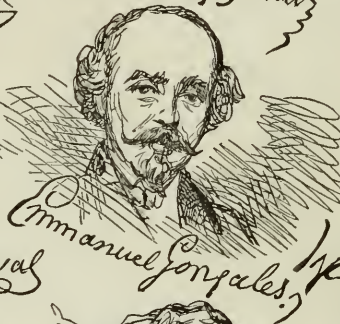 Emmanuel Gonzales.